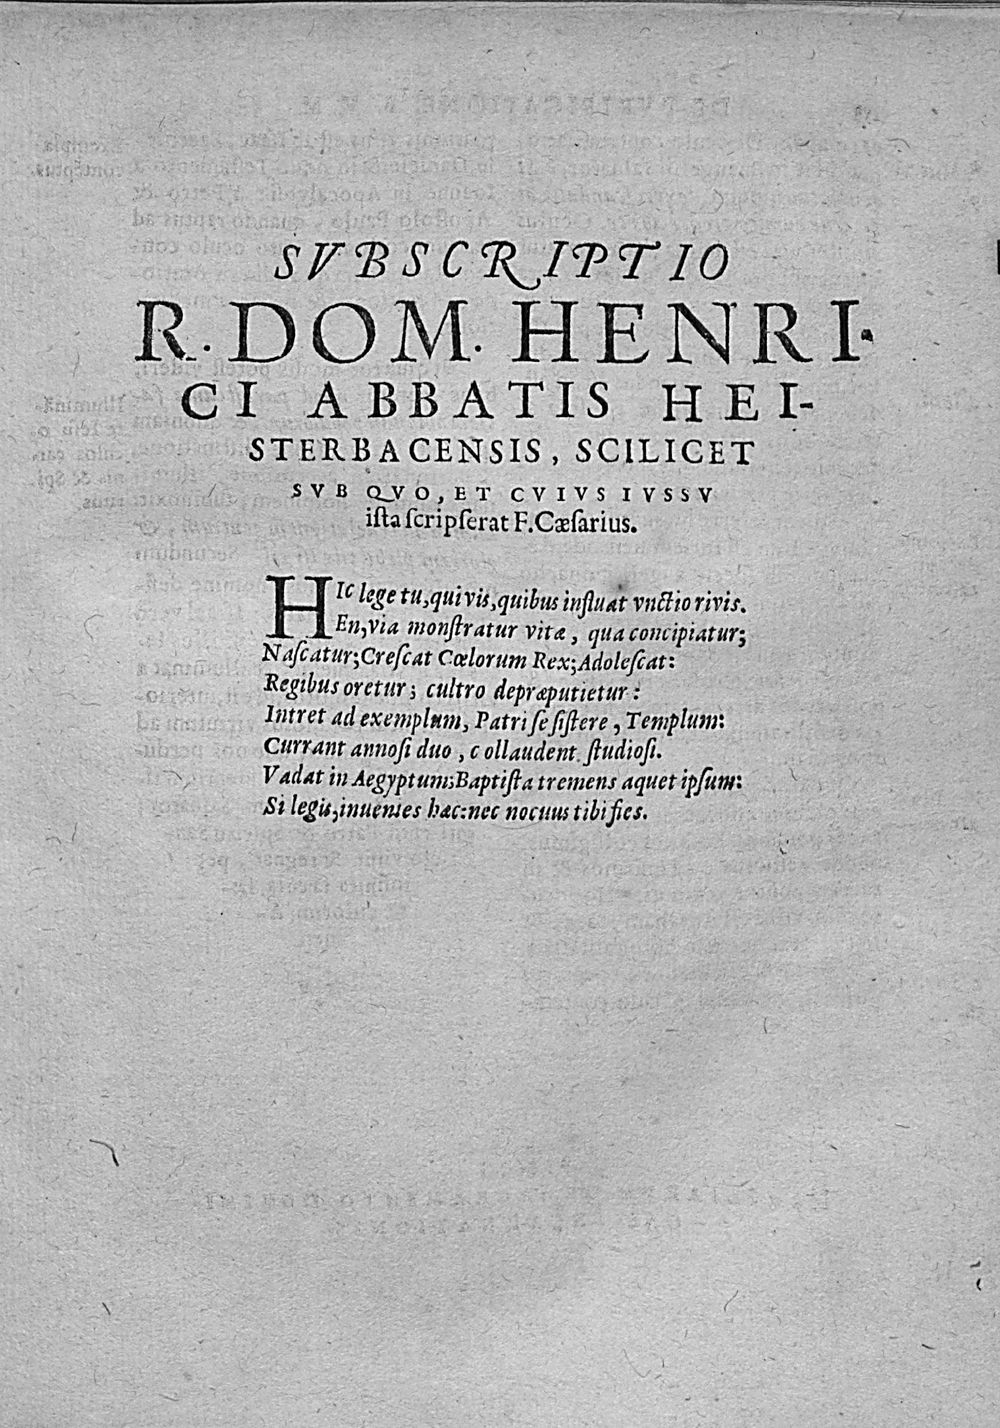 SVBSCRIPTIO
R. DOM. HENRI-
CI ABBATIS HEI-
STERBACENSIS, SCILICET
SVB QVO, ET CVIVS IVSSV
iſta ſcripſerat F. Cæſarius.
HIc lege tu, quivis, quibus influat vnctio rivis.
En, via monſtratur vitæ, qua concipiatur;
Naſcatur; Creſcat Cœlorum Rex; Adoleſcat:
Regibus oretur; cultro depræputietur:
Intret ad exemplum, Patri ſe ſiſtere, Templum:
Currant annoſi duo, collaudent ſtudioſi.
Vadat in Aegyptum; Baptiſta tremens aquet ipſum:
Si legis, inuenies hæc: nec nocuus tibi fies.